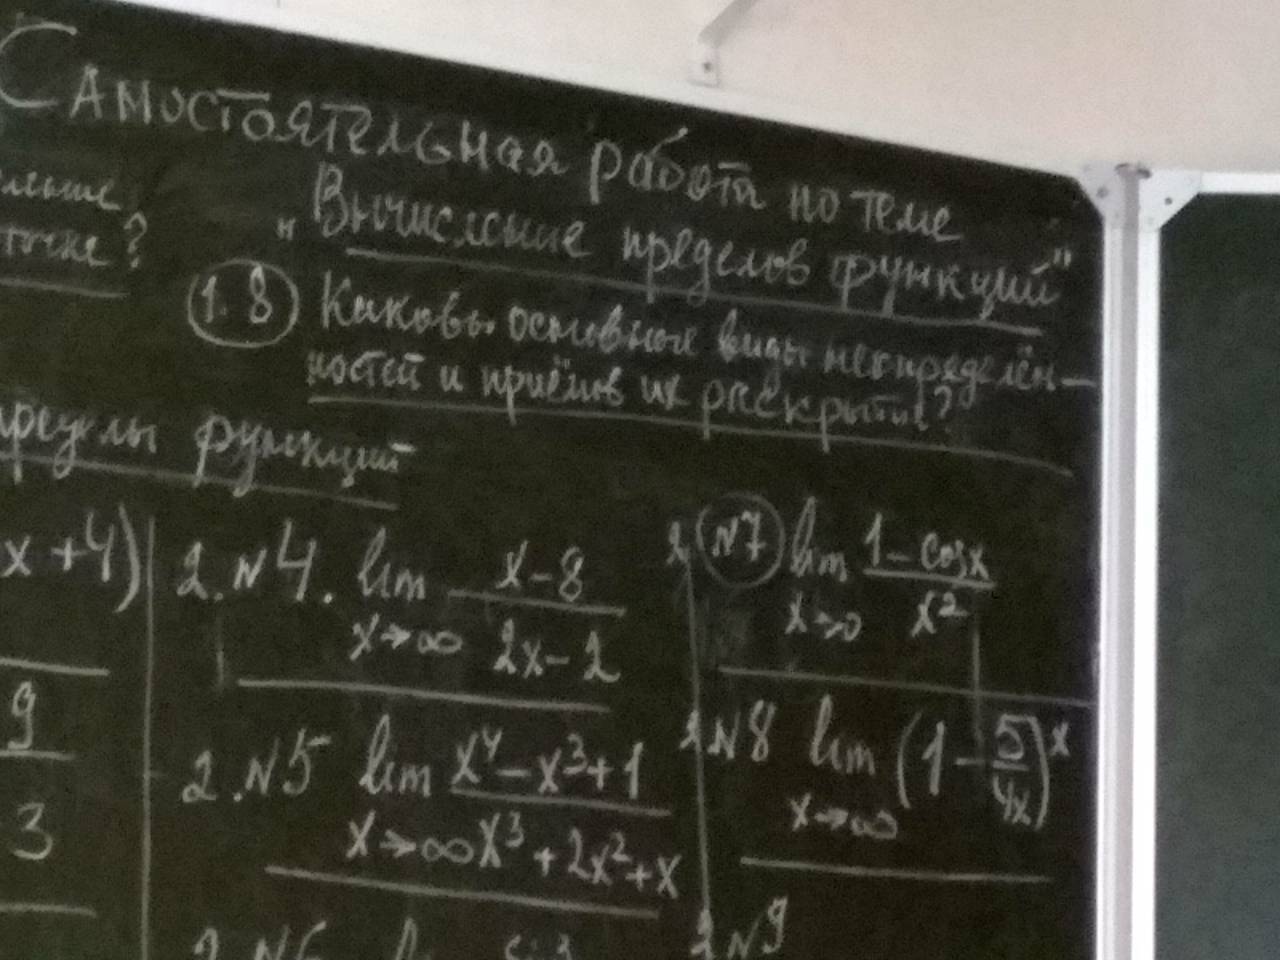 Самостоятельная работа по теме
"Вычисление пределов функций"
точке?
1.8 Каковы основные виды неопределён-
ностей и приёмов их раскрытие?
пределы функций
x + 4)
2.N4. lim x→∞ (x - 8)/(2x - 2)
2 N7 lim x→0 (1 - cosx)/x²
9
3
2.N5 lim x→∞ (x⁴ - x³ + 1)/(x³ + 2x² + x)
2N8 lim x→∞ (1 - 5/4x)ˣ
2.N6
2N9